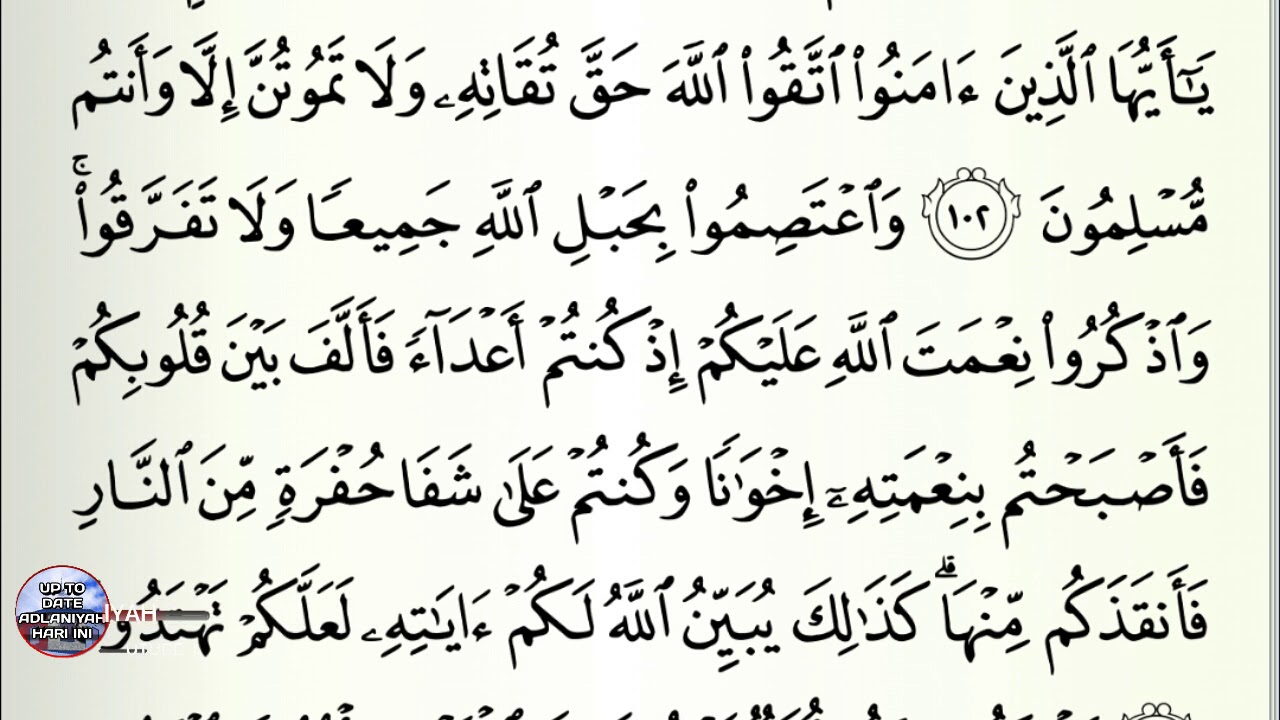 يَـٰٓأَيُّهَا ٱلَّذِينَ ءَامَنُوا۟ ٱتَّقُوا۟ ٱللَّهَ حَقَّ تُقَاتِهِۦ وَلَا تَمُوتُنَّ إِلَّا وَأَنتُم
مُّسْلِمُونَ ١٠٢ وَٱعْتَصِمُوا۟ بِحَبْلِ ٱللَّهِ جَمِيعًا وَلَا تَفَرَّقُوا۟ ۚ
وَٱذْكُرُوا۟ نِعْمَتَ ٱللَّهِ عَلَيْكُمْ إِذْ كُنتُمْ أَعْدَآءً فَأَلَّفَ بَيْنَ قُلُوبِكُمْ
فَأَصْبَحْتُم بِنِعْمَتِهِۦٓ إِخْوَٰنًا وَكُنتُمْ عَلَىٰ شَفَا حُفْرَةٍ مِّنَ ٱلنَّارِ
فَأَنقَذَكُم مِّنْهَا ۗ كَذَٰلِكَ يُبَيِّنُ ٱللَّهُ لَكُمْ ءَايَـٰتِهِۦ لَعَلَّكُمْ تَهْتَدُو
UP TO
DATE
ADLANIYAH
HARI INI
IYAH